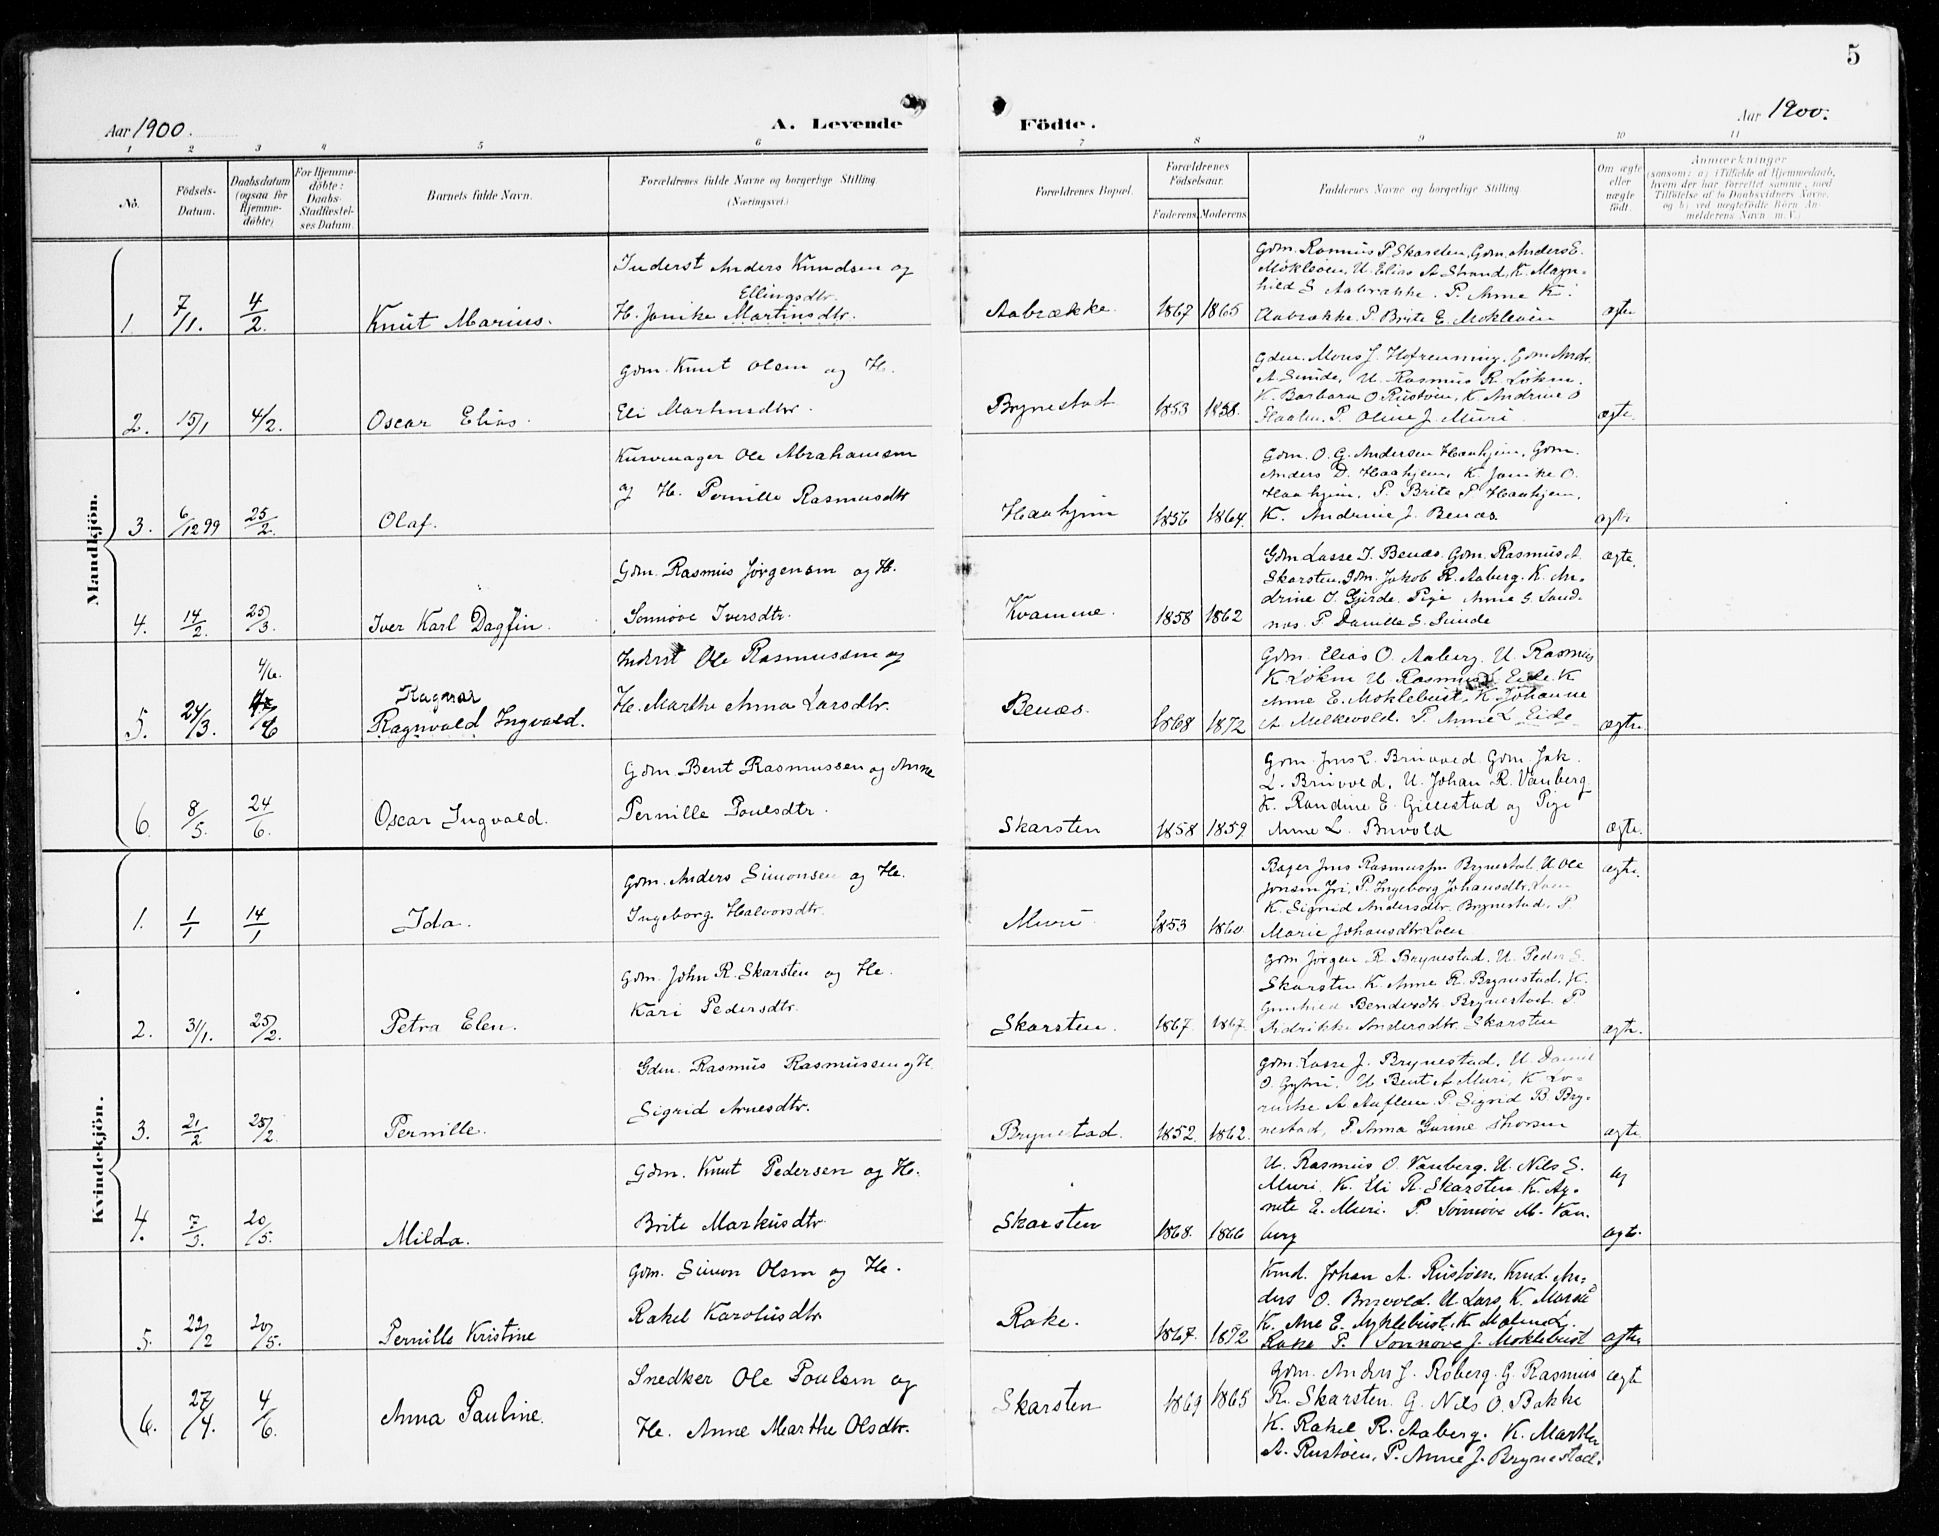 5
Aar 1900.
A. Levende
Födte.
Aar 1900.
1 2 3 4 5 6 7 8 9 10 11
No.
Födsels-
Datum.
Daabsdatum
(ogsaa for
Hjemme-
döbte)
For Hjemme-
döbte:
Daabs-
Stadfæstel-
ses Datum.
Barnets fulde Navn.
Forældrenes fulde Navne og borgerlige Stilling
(Næringsvei.)
Forældrenes Bopæl.
Forældrenes
Födselsaar.
Faderens Moderens
Faddernes Navne og borgerlige Stilling.
Om ægte
eller
uægte
födt.
Anmærkninger
(saasom: a) i Tilfælde af Hjemmedaab,
hvem der har forrettet samme, med
Tilföielse af to Daabsvidners Navne,
og b) ved uægtefödte Börn An-
melderens Navn m.V.)
Mandkjön.
1. 7/1. 4/2 Knut Marius.
Inderst Anders Knudsen og
Ellingsdtr.
H. Janike Martinsdtr.
Aabrække. 1867 1865
Gdm. Rasmus P. Skarsten, Gdm. Anders E.
Mokleöen, U. Elias A Strand, K. Magn-
hild S Aabrække. P. Anne K.
Aabrække. P. Brite E. Mokleöen
ægte
2. 15/1 4/2. Oscar Elias.
Gdm. Knut Olsen og H.
Eli Martinusdtr.
Brynestad 1853 1858.
Gdm. Mons J. Hofrenning, Gdm Andr.
A Sunde, U. Rasmus R. Löken.
K. Barbara O Rustöen, K. Andrine O
P. Oline J. Muri
ægte.
3. 6/12 99 25/2. Olaf.
Kurvmager Ole Abrahamsen
og H. Pernille Rasmusdtr
Haahjem 1856 1864.
Gdm. O. G. Andersen Haahjem, Gdm.
Anders D. Haahjem, K. Janike O.
Haahjem, P. Brite P. Haahjem,
K. Andrine J. Benæs.
ægte
4. 14/2. 25/3. Iver Karl Dagfin.
Gdm. Rasmus Jørgensen og H.
Sønnøve Iversdtr.
Kvamme. 1858 1862
Gdm Lasse I. Benæs. Gdm. Rasmus A
Skarsten. Gdm. Jakob R. Aaberg. K. An-
drine O. Gjerde. Pige Anne S. Sand-
nes. P Danille S. Sunde
ægte.
5. 24/3. 4/6.
Ragnar
Ragnvald Ingvald.
Inderst Ole Rasmussen og
H. Marthe Anna Larsdtr.
Benæs. 1868 1872
Gdm. Elias O. Aaberg. U. Rasmus
K Löken U Rasmus Eide K
Anne E. Moklebust, K. Johanne
A Melkevold. P. Anne L Eide
ægte.
6. 8/5. 24/6. Oscar Ingvald.
Gdm. Bent Rasmussen og Anne
Pernille Poulsdtr.
Skarsten 1858 1859.
Gdm. Jens L. Bruvold Gdm. Jak.
L. Bruvold, U. Johan R. Vanberg
K. Randine E. Gillestad og Pige
Anne L. Bruvold
ægte.
Kvindekjön.
1. 1/1 14/1 Ida.
Gdm. Anders Simonsen og H.
Ingeborg Halvorsdtr.
Muri 1853 1860
Bager Jens Rasmussen Brynestad. U. Ole
Jensen Iri, P. Ingeborg Johansdtr. Loen
K. Sigrid Andersdtr. Brynestad. P
Marie Johansdtr Loen
ægte.
2. 31/1. 25/2. Petra Elen.
Gdm. John R. Skarsten og H.
Kari Pedersdtr.
Skarsten. 1867. 1867.
Gdm Jørgen R Brynestad. U. Peder S.
Skarsten K. Anne R. Brynestad. K.
Bendiksdtr. Brynestad. P
Andersdtr. Skarsten
ægte.
3. 21/2 25/2. Pernille.
Gdm. Rasmus Rasmussen og H.
Sigrid Arnesdtr.
Brynestad. 1852. 1862.
Gdm. Lasse J. Brynestad, U. Daniel
O. Gytri, U Bent A Muri, K Lo-
A Auflem. P Sigrid B. Bry-
nestad, P. Anna Gurine
ægte.
4. 7/3. 20/5. Milda.
Gdm. Knut Pedersen og H.
Brite Markusdtr
Skarsten 1868. 1866
U. Rasmus O. Vanberg. U. Nils S.
Muri, K. Eli R. Skarsten. K. Ag-
nete E. Muri. P. Sønnøve M. Van-
berg
æg
ægte.
5. 22/2 20/5. Pernille Kristine
Gdm. Simon Olsen og H.
Rakel Karolusdtr
Rake. 1867. 1872
Kmd. Johan A. Rustöen, Kmd. An-
ders O. Bruvold. U Lars K. Muri
K. Ane E. Myklebust. K Malene L.
Rake P. Sønnøve J. Moklebust
ægte
6. 27/4. 4/6. Anna Pauline.
Snedker Ole Poulsen og
H. Anne Marthe Olsdtr.
Skarsten 1869 1865
Gdm. Anders J. Roberg. G. Rasmus
R. Skarsten. G. Nils O. Bakke
K. Rakel R. Aaberg. K. Marthe
A. Rustöen, P. Anne J. Brynestad.
ægte